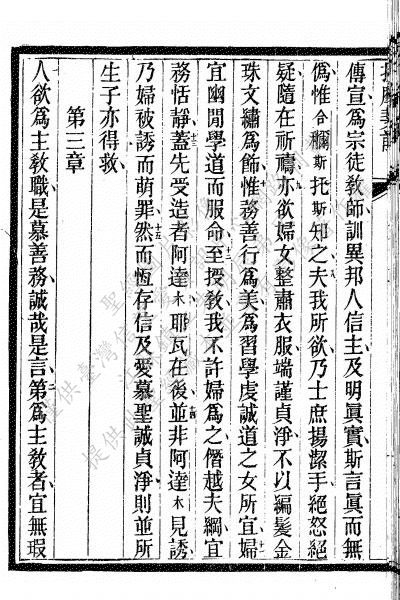 傳宣為宗徒教師訓異邦人信主及明眞實斯言眞而無
僞惟合穪斯托斯知之夫我所欲乃士庶揚潔手絕怒絕
疑隨在祈禱亦欲婦女整肅衣服端謹貞淨不以編髮金
珠文繡為飾惟務善行為美為習學虔誠道之女所宜婦
宜幽閒學道而服命至授敎我不許婦為之僭越夫綱宜
務恬靜蓋先受造者阿達木耶瓦在後並非阿達木見誘
乃婦被誘而萌罪然而恆存信及愛慕聖誠貞淨則並所
生子亦得救
第三章
人欲為主教職是慕善務誠哉是言第為主敎者宜無瑕